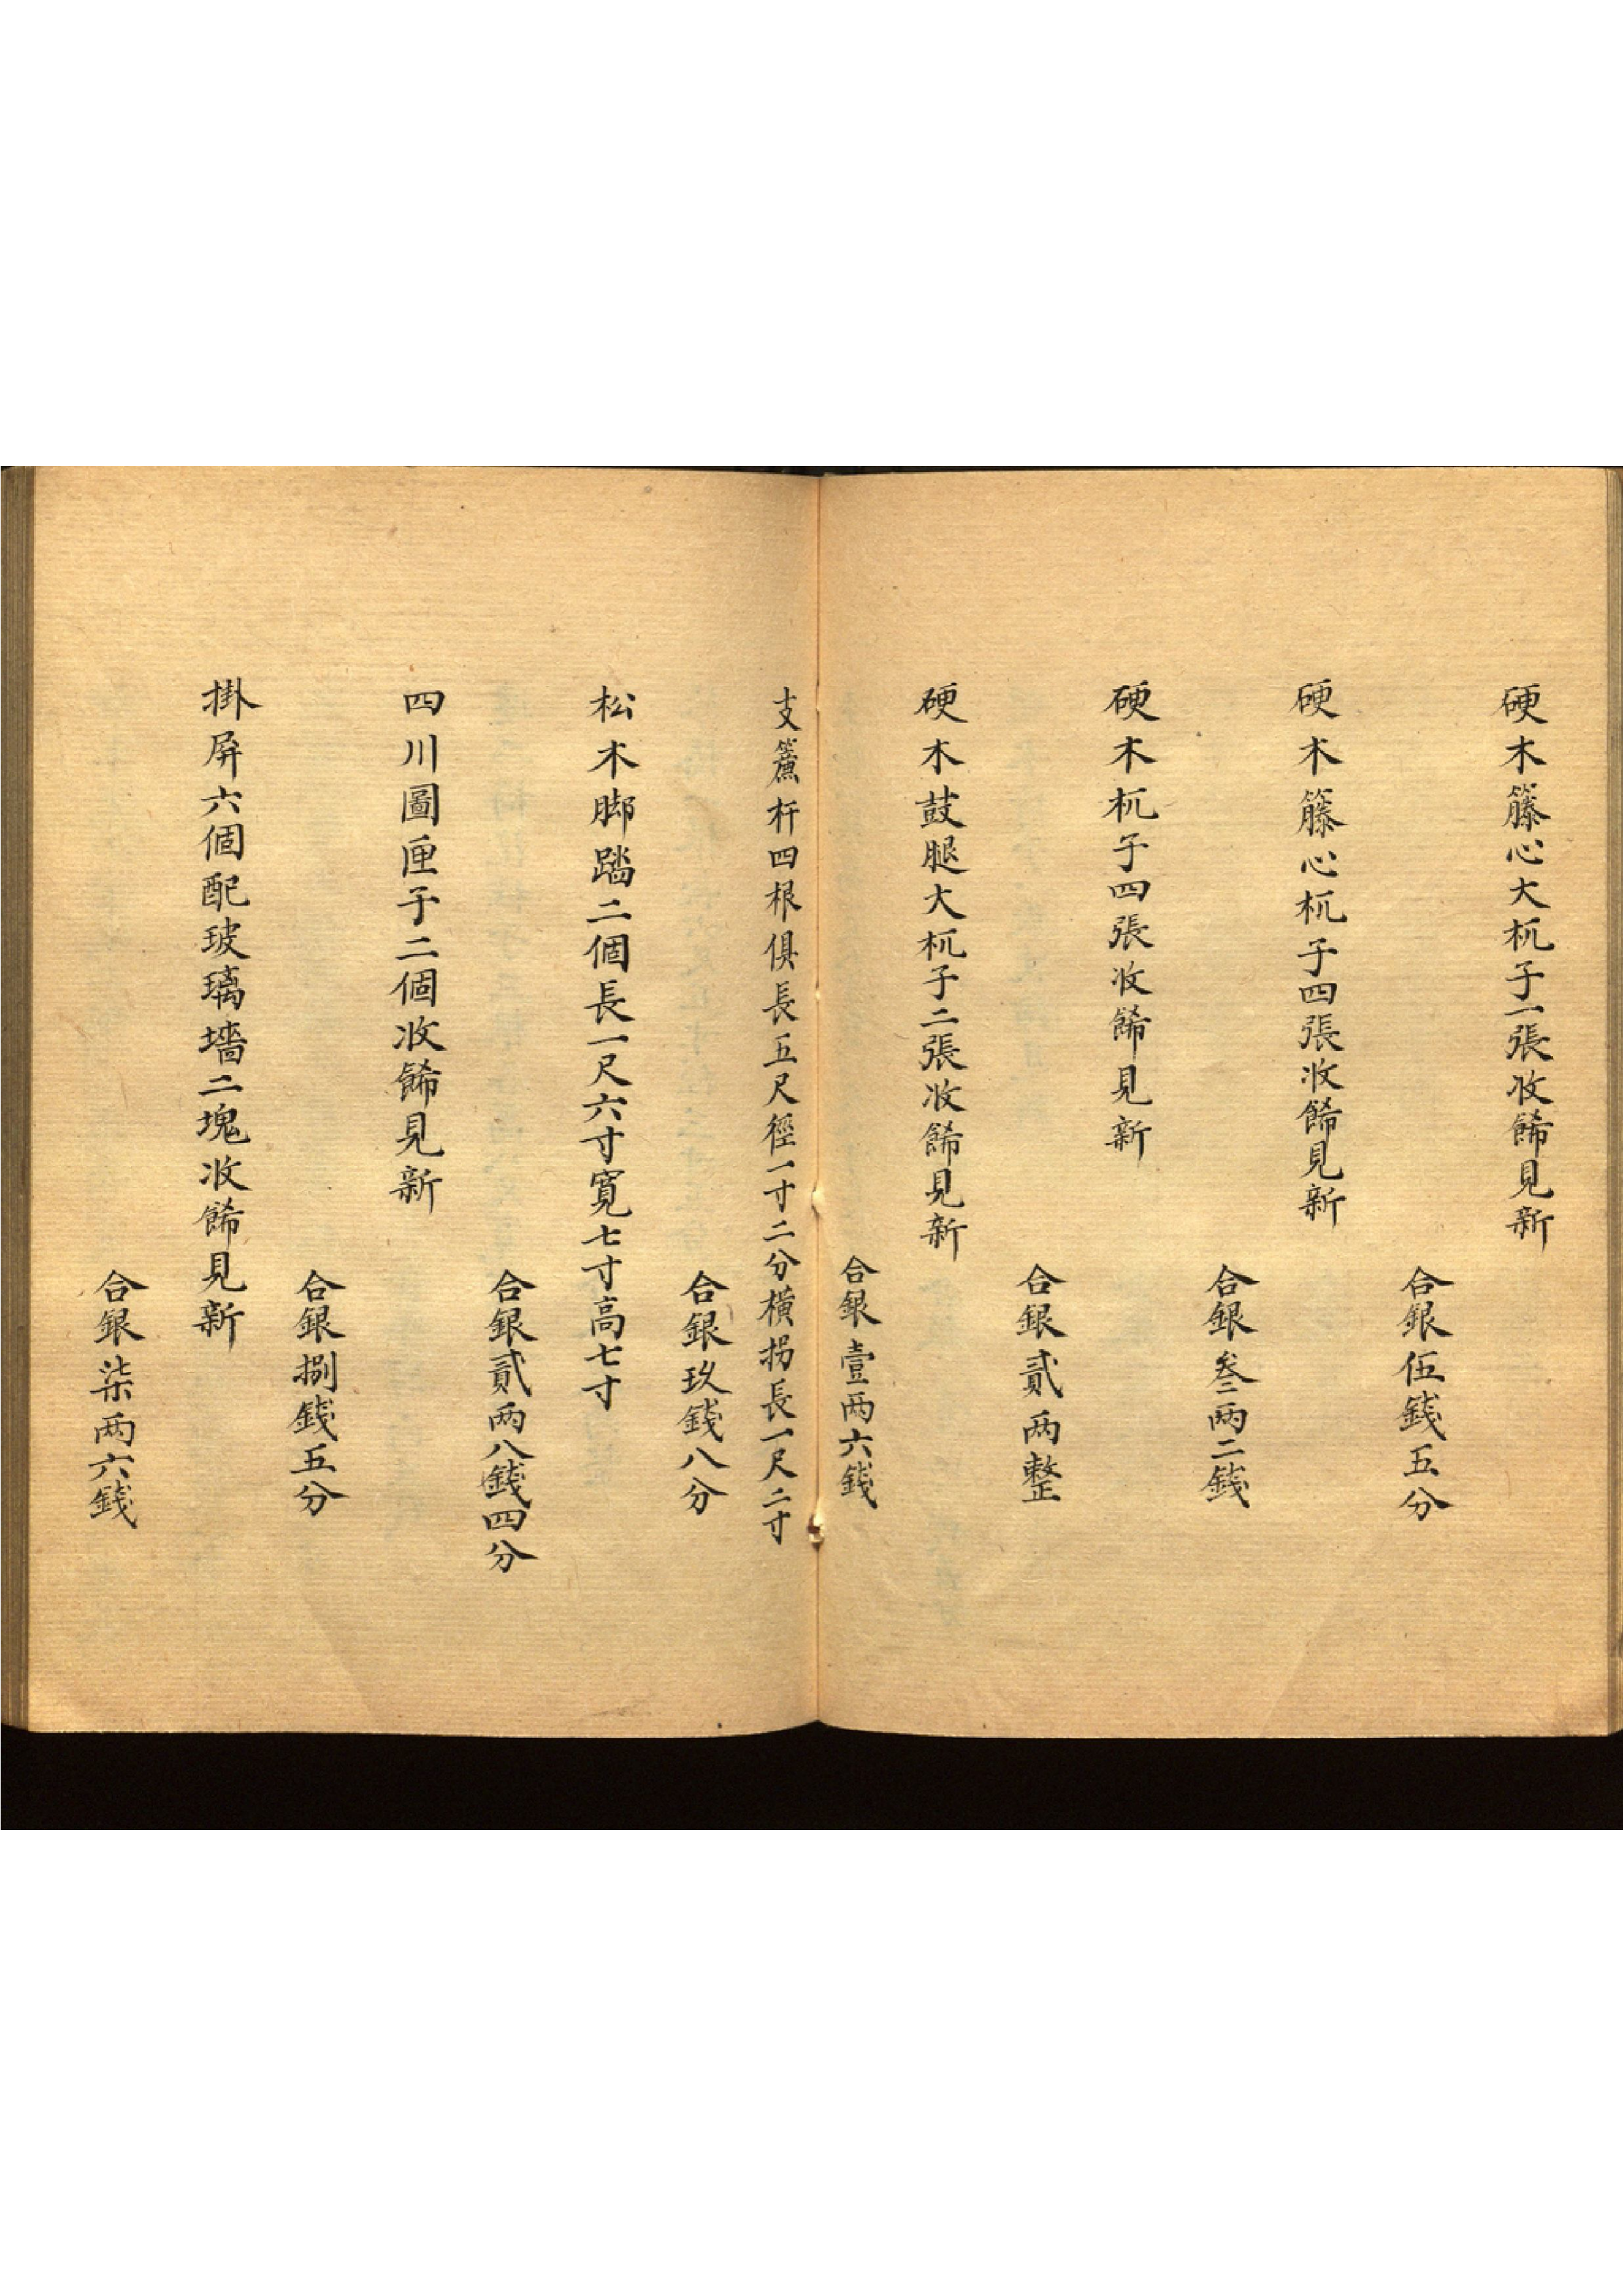 硬木籐心大杌子一張收餙見新
合銀伍錢五分
硬木籐心杌子四張收餙見新
合銀叁两二錢
硬木杌子四張收餙見新
合銀貳两整
硬木鼓腿大杌子二張收餙見新
合銀壹两六錢
支簾杆四根俱長五尺徑一寸二分橫拐長一尺二寸
合銀玖錢八分
松木脚踏二個長一尺六寸寬七寸高七寸
合銀貳两八錢四分
四川圖匣子二個收餙見新
合銀捌錢五分
掛屏六個配玻璃墻二塊收餙見新
合銀柒两六錢